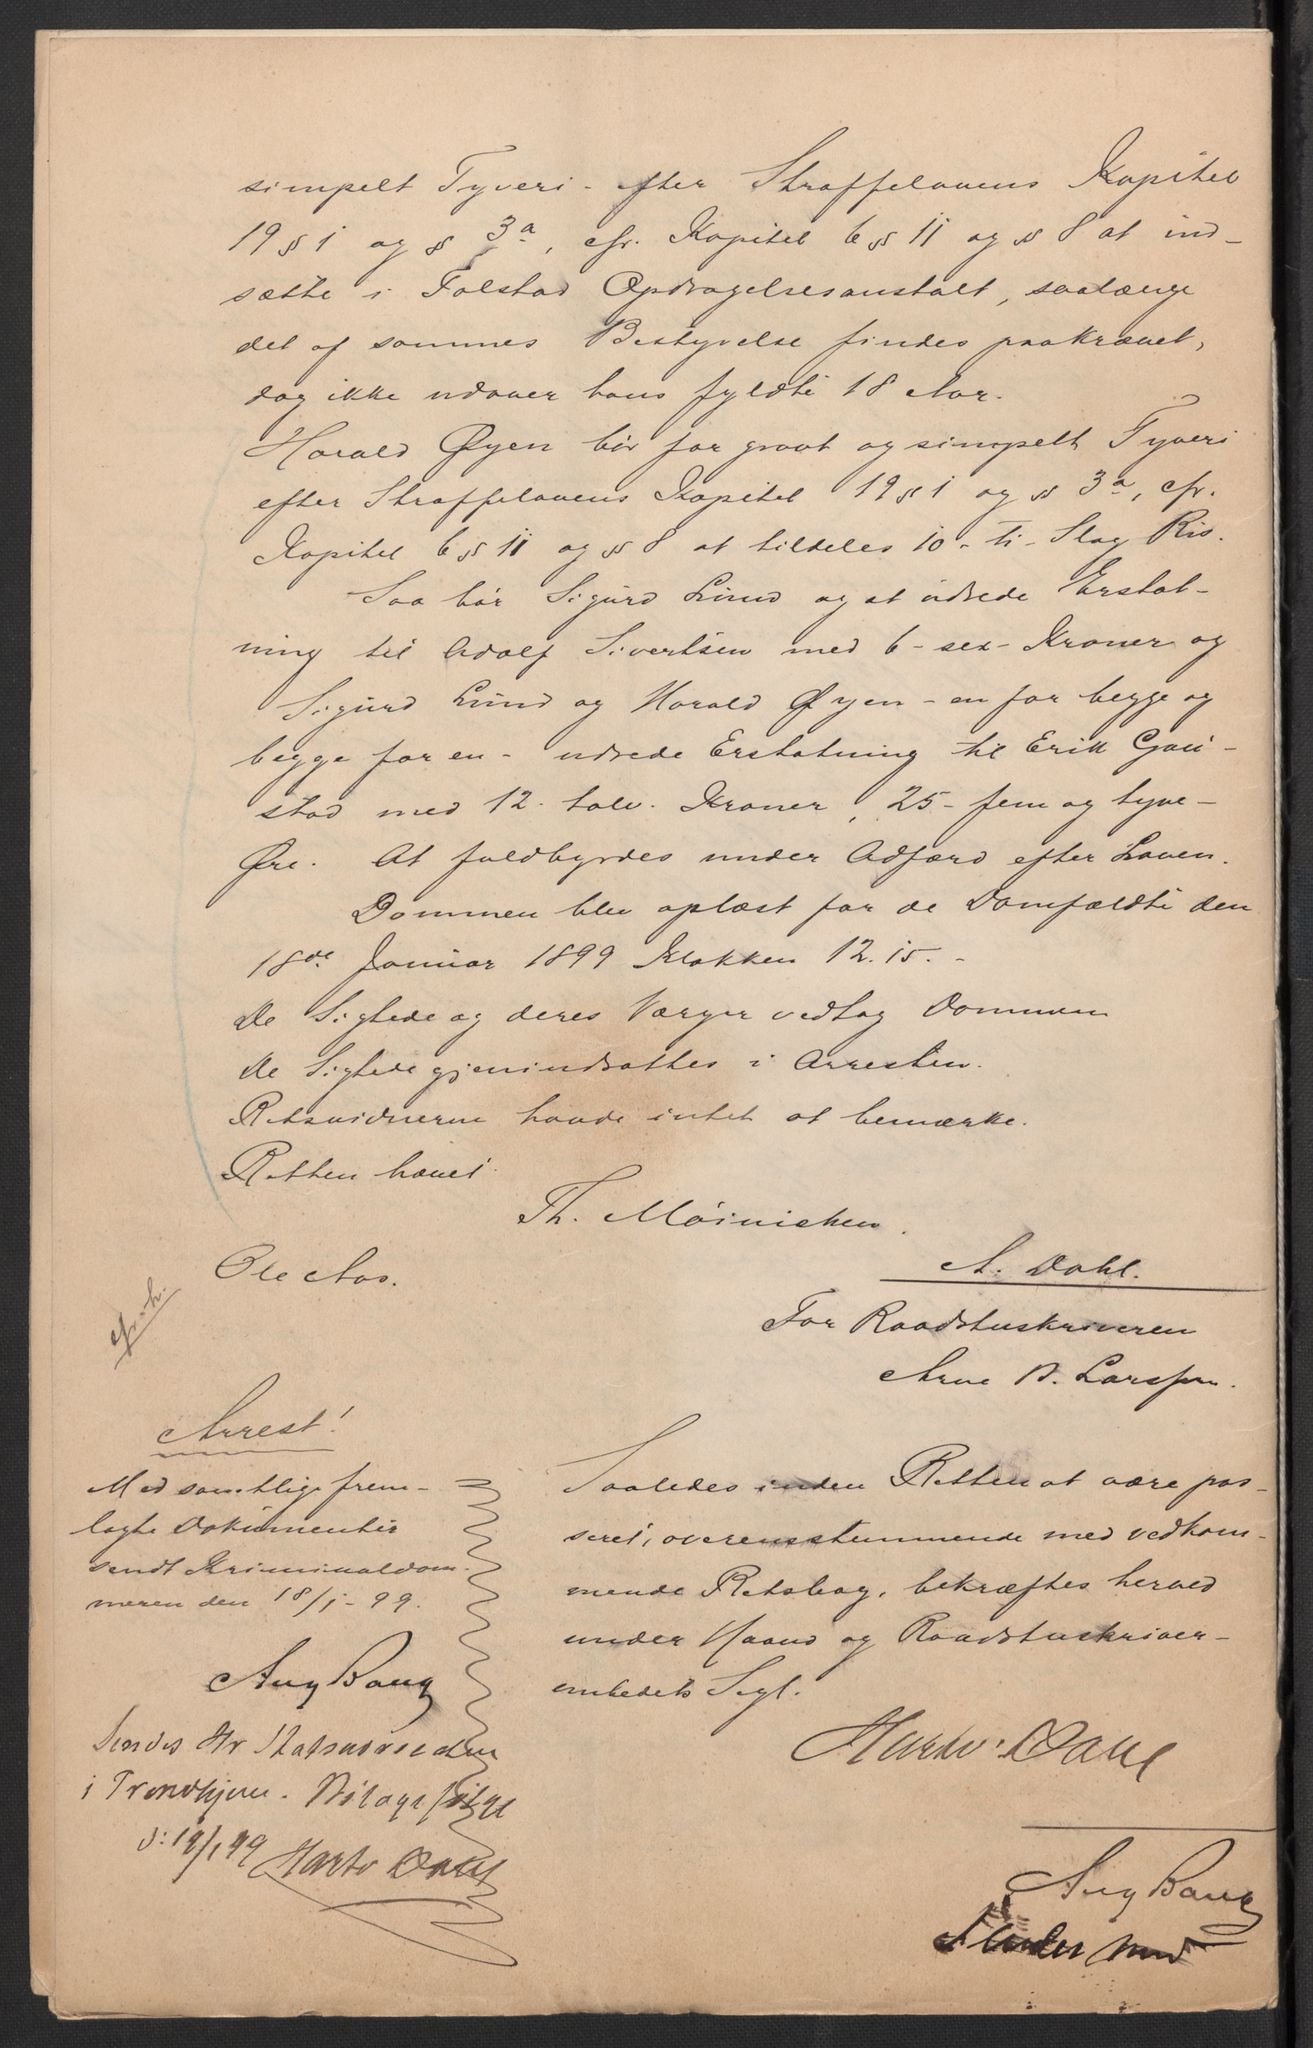 simpelt Tyveri - efter Straffelovens Kapitel
19 § 1 og § 3a, cfr. Kapitel 6 § 11 og § 8 at ind-
sætte i Falstad Opdragelsesanstalt, saalænge
det af sammes Bestyrelse findes paakrævet,
dog ikke udover hans fyldte 18 Aar.
Harald Øyen bør for grovt og simpelt Tyveri
efter Straffelovens Kapitel 19 § 1 og § 3a, cfr.
Kapitel 6 § 11 og § 8 at tildeles 10 - ti - Slag Ris.
Saa bør Sigurd Lund og at udrede Erstat-
ning til Adolf Sivertsen med 6 - sex - Kroner og
Sigurd Lund og Harald Øyen - en for begge og
begge for en - udrede Erstatning til Erik Gau-
stad med 12 - tolv - Kroner, 25 - fem og tyve -
Øre. At fuldbyrdes under Adfærd efter Loven.
Dommen blev oplæst for de Domfældte den
18de Januar 1899 Klokken 12.15. -
De Sigtede og deres Værger vedtog Dommen
De Sigtede gjenindsattes i Arresten.
Retsvidnerne havde intet at bemærke.
Retten hævet.
Th. Møinichen.
Ole Aas.
A. Dahl.
For Raadstuskriveren
Arne B. Larssen.
Arrest!
Med samtlige frem-
lagte Dokumenter
sendt Kriminaldom-
meren den 18/1-99.
Aug Bang
Sendes Hr Statsadvokaten
i Trondhjem. Bilage følge
d: 19/1 99 Hartv Dahl
Saaledes inden Retten at være pas-
seret, overensstemmende med vedkom-
mende Retsbog, bekræftes herved
under Haand og Raadstuskriver-
embedets Segl.
Hartv. Dahl
Aug Bang